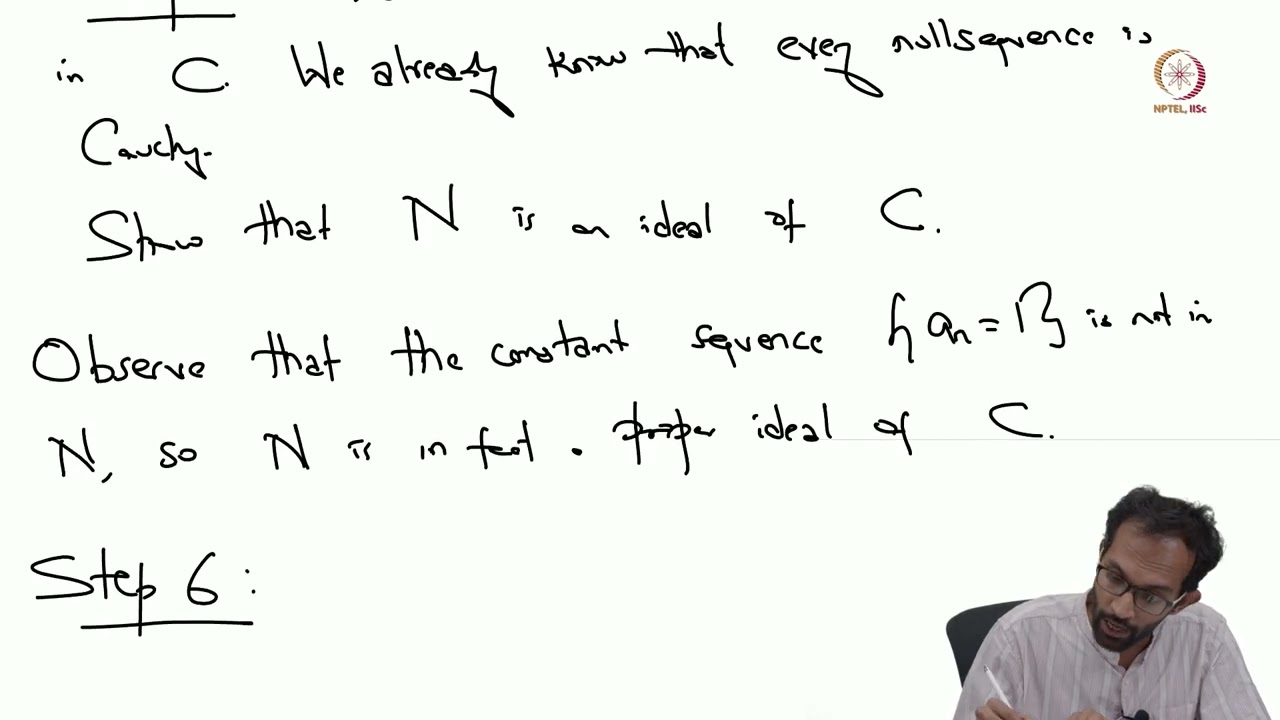 in C. We already know that every nullsequence is
NPTEL, IISc
Cauchy.
Show that N is an ideal of C.
Observe that the constant sequence { an = 1 } is not in
N, so N is in fact a proper ideal of C.
Step 6 :